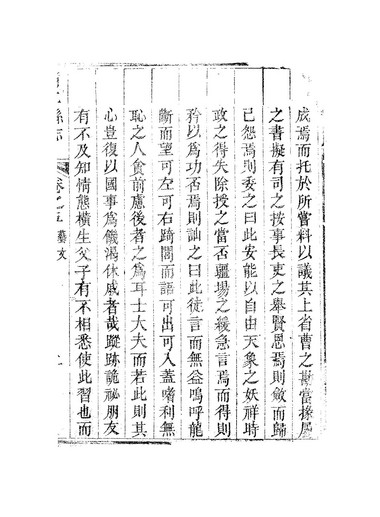 成焉而托於所嘗料以議其上省曹之勘當掾屬
之書擬有司之按事長吏之舉賢恩焉則斂而歸
已怨焉則委之曰此安能以自由天象之妖祥時
政之得失除授之當否疆場之緩急言焉而得則
矜以為功否焉則訕之曰此徒言而無益嗚呼龍
斷而望可左可右踦閭而語可出可入蓋嗜利無
恥之人貪前慮後者之為耳士大夫而若此則其
心豈復以國事為饑渴休戚者哉蹤跡詭祕朋友
有不及知情態橫生父子有不相悉使此習也而
縣志
卷之五
藝文